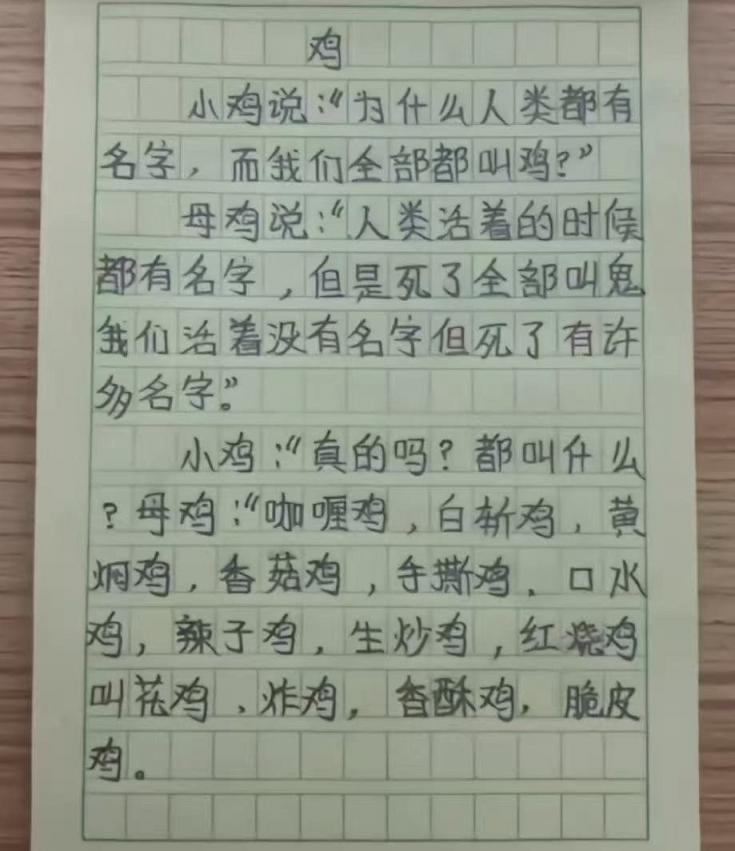 鸡
小鸡说:“为什么人类都有
名字，而我们全部都叫鸡?”
母鸡说:“人类活着的时候
都有名字，但是死了全部叫鬼
我们活着没有名字但死了有许
多名字”。
小鸡:“真的吗?都叫什么
?母鸡:“咖喱鸡，白斩鸡，黄
焖鸡，香菇鸡，手撕鸡，口水
鸡，辣子鸡，生炒鸡，红烧鸡
叫花鸡、炸鸡，香酥鸡，脆皮
鸡。